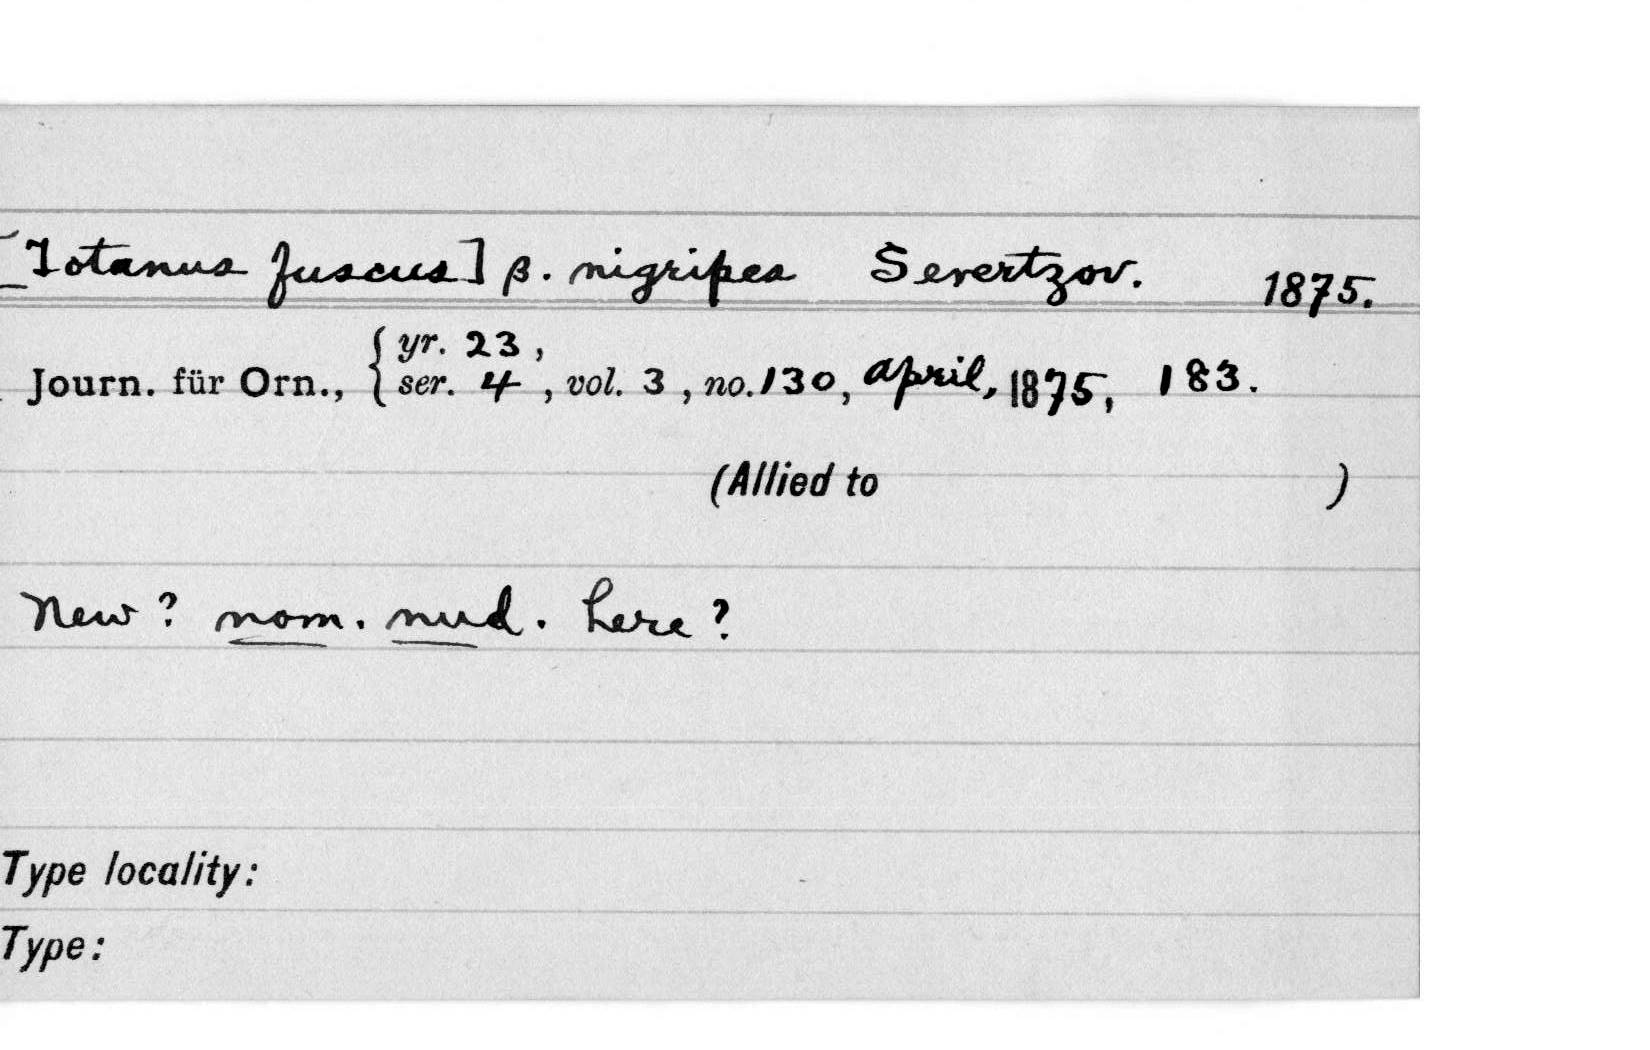 [Totanus fuscus] β. nigripes Severtzov. 1875.
Journ. für Orn., { yr. 23,
ser. 4, vol. 3, no. 130, april, 1875, 183.
(Allied to )
New? nom. nud. here?
Type locality:
Type: